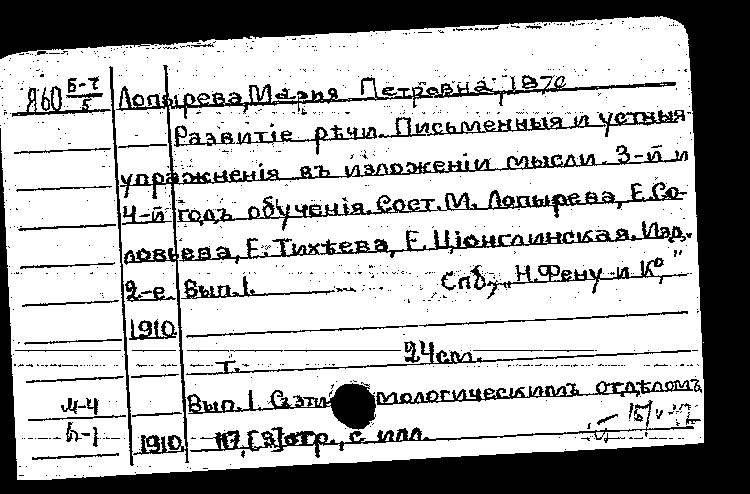 Я60 Б-7/5 Лопырева, Мария Петровна, 1870
Развитіе рѣчи. Письменныя и устныя
упражненія въ изложеніи мысли. 3-й и
4-й годъ обученія. Сост. М. Лопырева, Е. Со-
ловьева, Е. Тихѣева, Е. Ціонглинская. Изд.
2-е. Вып. 1. Спб., „Н. Фену и К°,"
1910.
т. 24 см.
м-4 Вып. 1. С эти мологическимъ отдѣломъ
1910. 117, [3] стр., с илл.